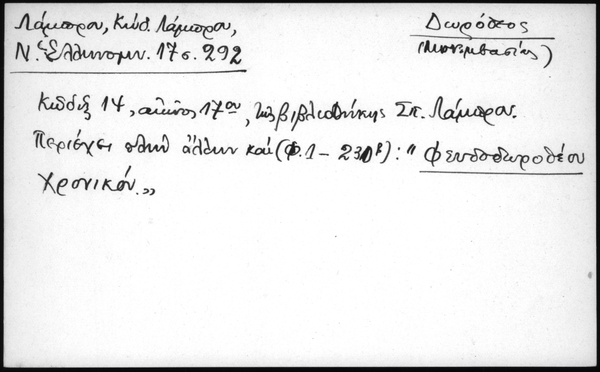 Λάμπρου, Κώδ. Λάμπρου,
Ν. Ἑλληνομν. 17 σ. 292
Δωρόθεος
(Μονεμβασίας)
Κῶδιξ 14, αἰῶνος 17ου, τῆς βιβλιοθήκης Σπ. Λάμπρου.
Περιέχει πλὴν ἄλλων καί (Φ. 1 - 231β) : "Ψευδοδωροθέου
Χρονικόν.„